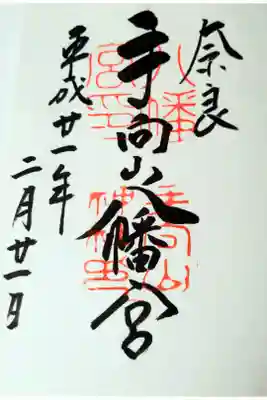 奈良
手向山八幡宮
平成廿一年
二月廿一日